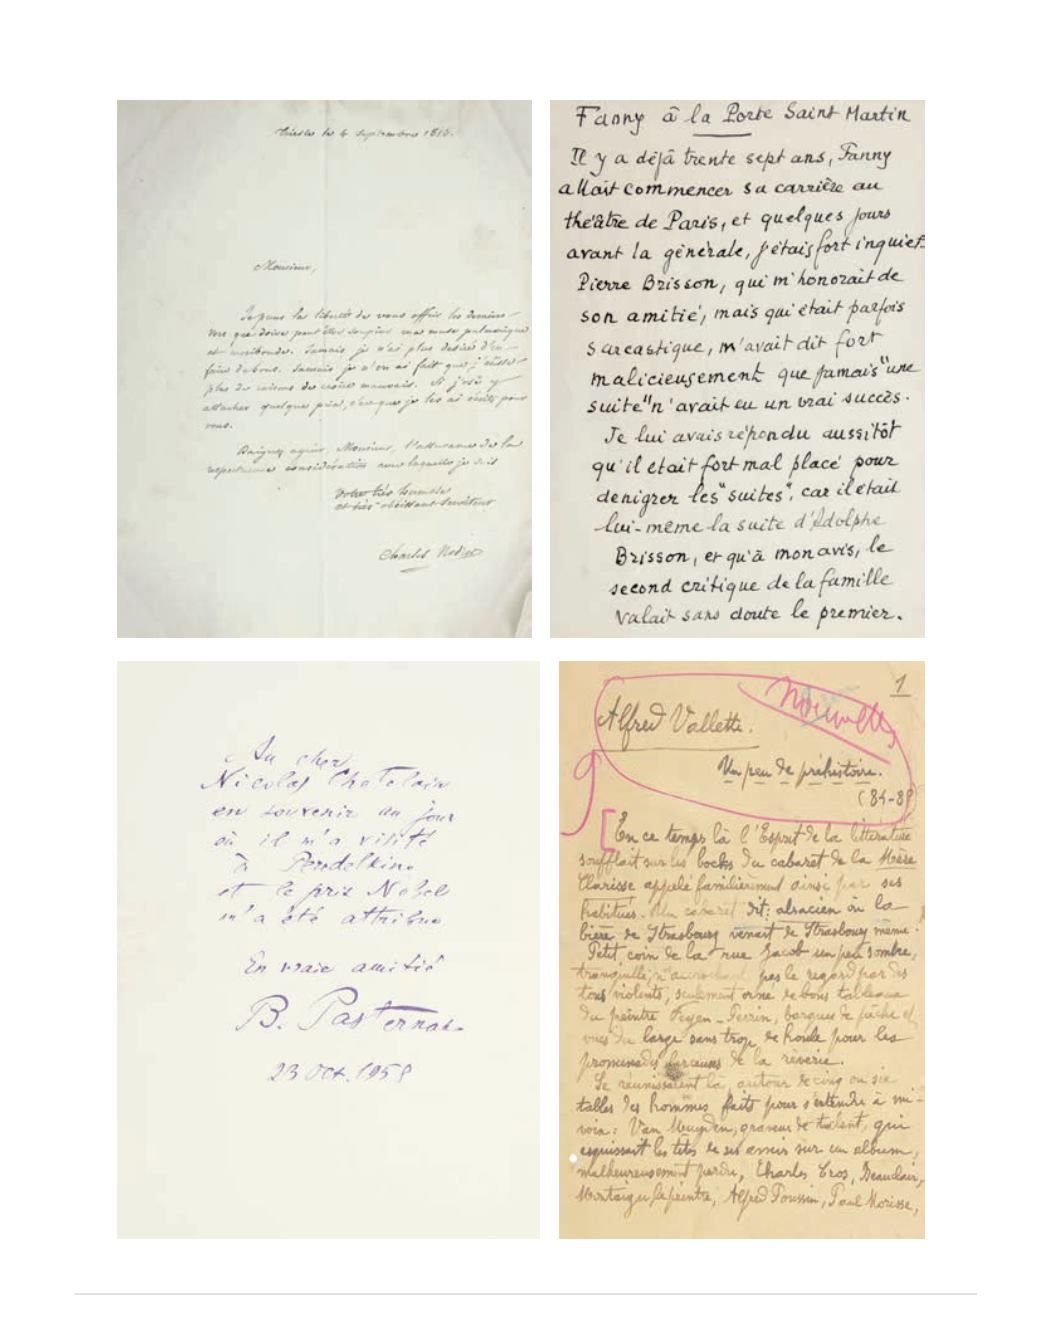 Trieste le 4 septembre 1813.
Monsieur,
Je prens la liberté de vous offrir les derniers
vers que doive peut être soupirer ma muse pulmonique
et moribonde. Jamais je n'ai plus desiré d'en
faire de bons. Jamais je n'en ai fait que j'eusse
plus de raisons de croire mauvais. Si j'ose y
attacher quelque prix, c'est que je les ai écrits pour
vous.
Daignez agréer, Monsieur, l'assurance de la
respectueuse considération avec laquelle je suis
votre très humble
et très obéissant serviteur
Charles Nodier
Fanny à la Porte Saint Martin
Il y a déjà trente sept ans, Fanny
allait commencer sa carrière au
théâtre de Paris, et quelques jours
avant la générale, j'étais fort inquiet.
Pierre Brisson, qui m'honorait de
son amitié, mais qui était parfois
sarcastique, m'avait dit fort
malicieusement que jamais "une
suite" n'avait eu un vrai succès.
Je lui avais répondu aussitôt
qu'il était fort mal placé pour
dénigrer les "suites", car il était
lui-même la suite d'Adolphe
Brisson, et qu'à mon avis, le
second critique de la famille
valait sans doute le premier.
Au cher
Nicolas Chatelain
en souvenir du jour
où il m'a visité
à Peredelkino
et le prix Nobel
m'a été attribué
En vraie amitié
B. Pasternak
23 Oct. 1958
1
Nouvelles
Alfred Vallette.
Un peu de préhistoire.
(84-8
En ce temps là l'Esprit de la littérature
soufflait sur les bocks du cabaret de la Mère
Clarisse appelé familièrement ainsi par ses
habitués. Un cabaret dit: alsacien où la
bière de Strasbourg venait de Strasbourg même.
Petit, coin de la rue Jacob un peu sombre,
tranquille, n'accrochant pas le regard par des
tons violents, seulement orné de bons tableaux
du peintre Feyen-Perrin, barques de pêche et
vues du large sans trop de houle pour les
promenades berceuses de la rêverie.
Se réunissaient là, autour de cinq ou six
tables des hommes faits pour s'entendre à mi-
voix: Van Muyden, graveur de talent, qui
esquissait les têtes de ses amis sur un album,
malheureusement perdu, Charles Cros, Beauclair,
Montaigu le peintre, Alfred Poussin, Paul Morisse,